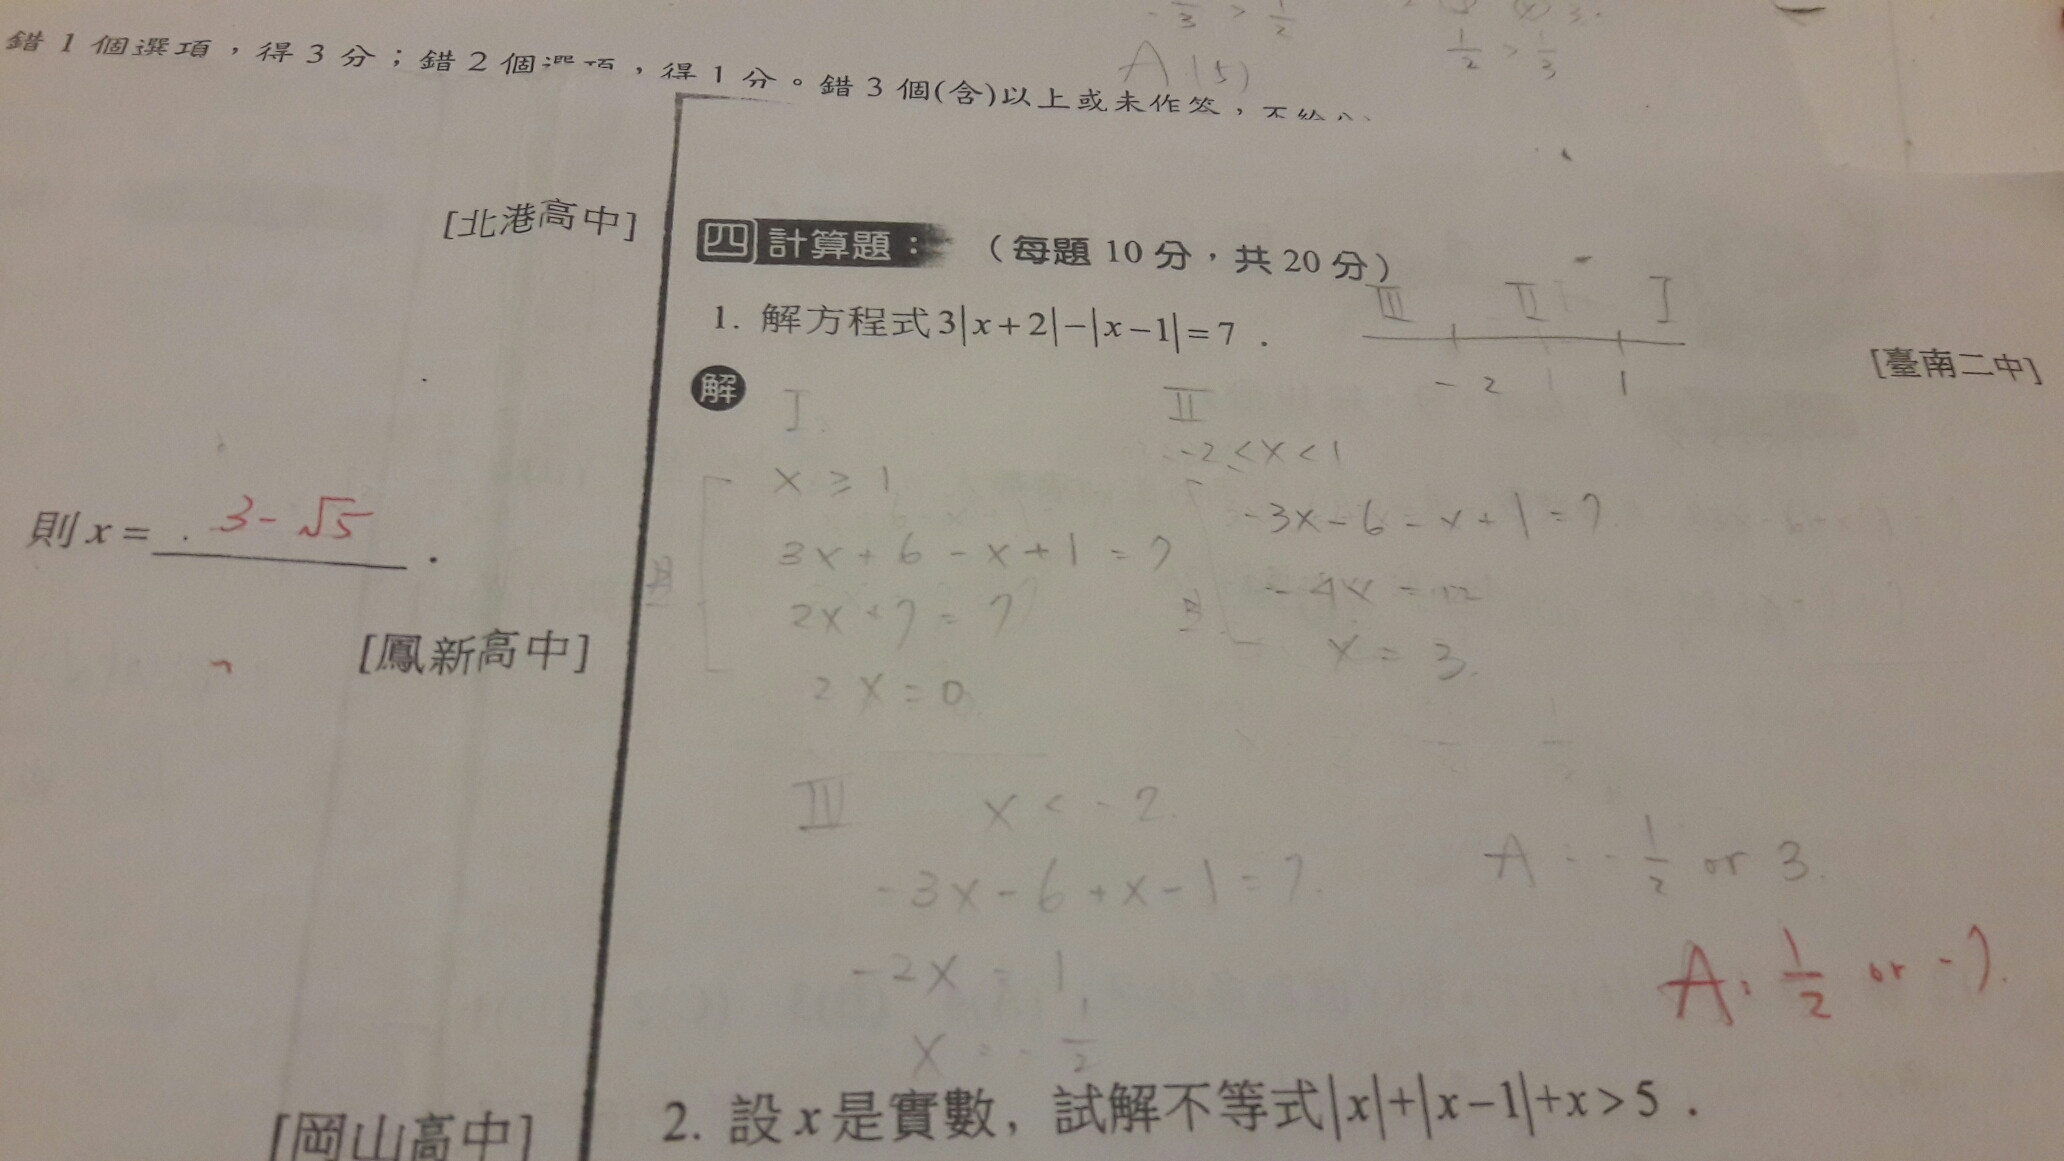 錯1個選項,得3分;錯2個選項,得1分。錯3個(含)以上或未作答,不給分
-1/3 > 1/2
1/2 > 1/3
A (5)
[北港高中]
則 x = 3-√5 .
[鳳新高中]
[岡山高中]
四 計算題: (每題10分,共20分)
1. 解方程式 3|x+2|-|x-1|=7 .
III II I
-2 1
[臺南二中]
解
I.
x ≥ 1
3x+6-x+1=7
2x+7=7
2x=0
II
-2<x<1
-3x-6-x+1=7
-4x=12
x=3.
III x<-2.
-3x-6+x-1=7.
-2x=1
x=-1/2
A:-1/2 or 3.
A: 1/2 or -7.
2. 設x是實數,試解不等式|x|+|x-1|+x>5 .